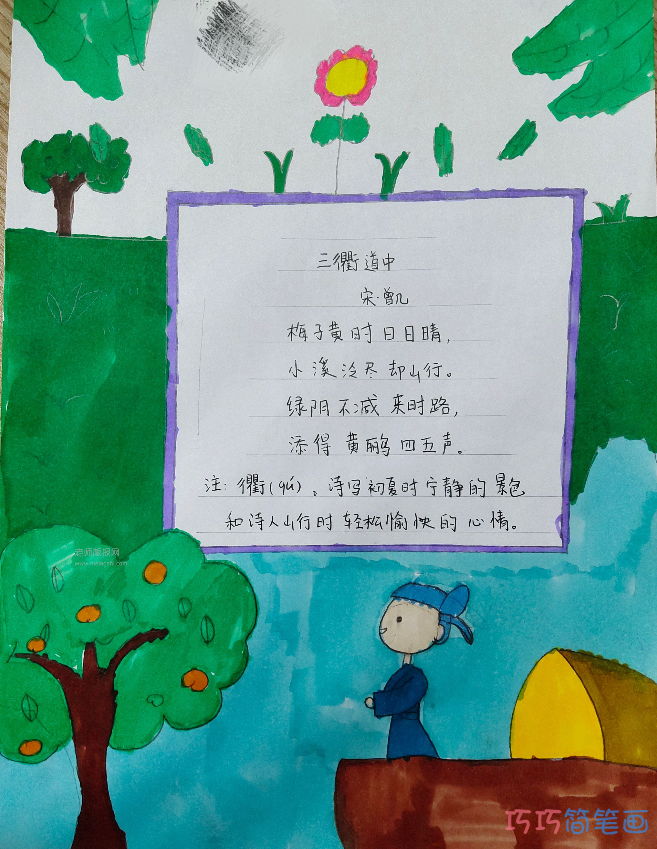 三衢道中
宋·曾几
梅子黄时日日晴,
小溪泛尽却山行。
绿阴不减来时路,
添得黄鹂四五声。
注:衢(qú)。诗写初夏时宁静的景色
和诗人山行时轻松愉快的心情。
老师简报网
巧巧简笔画